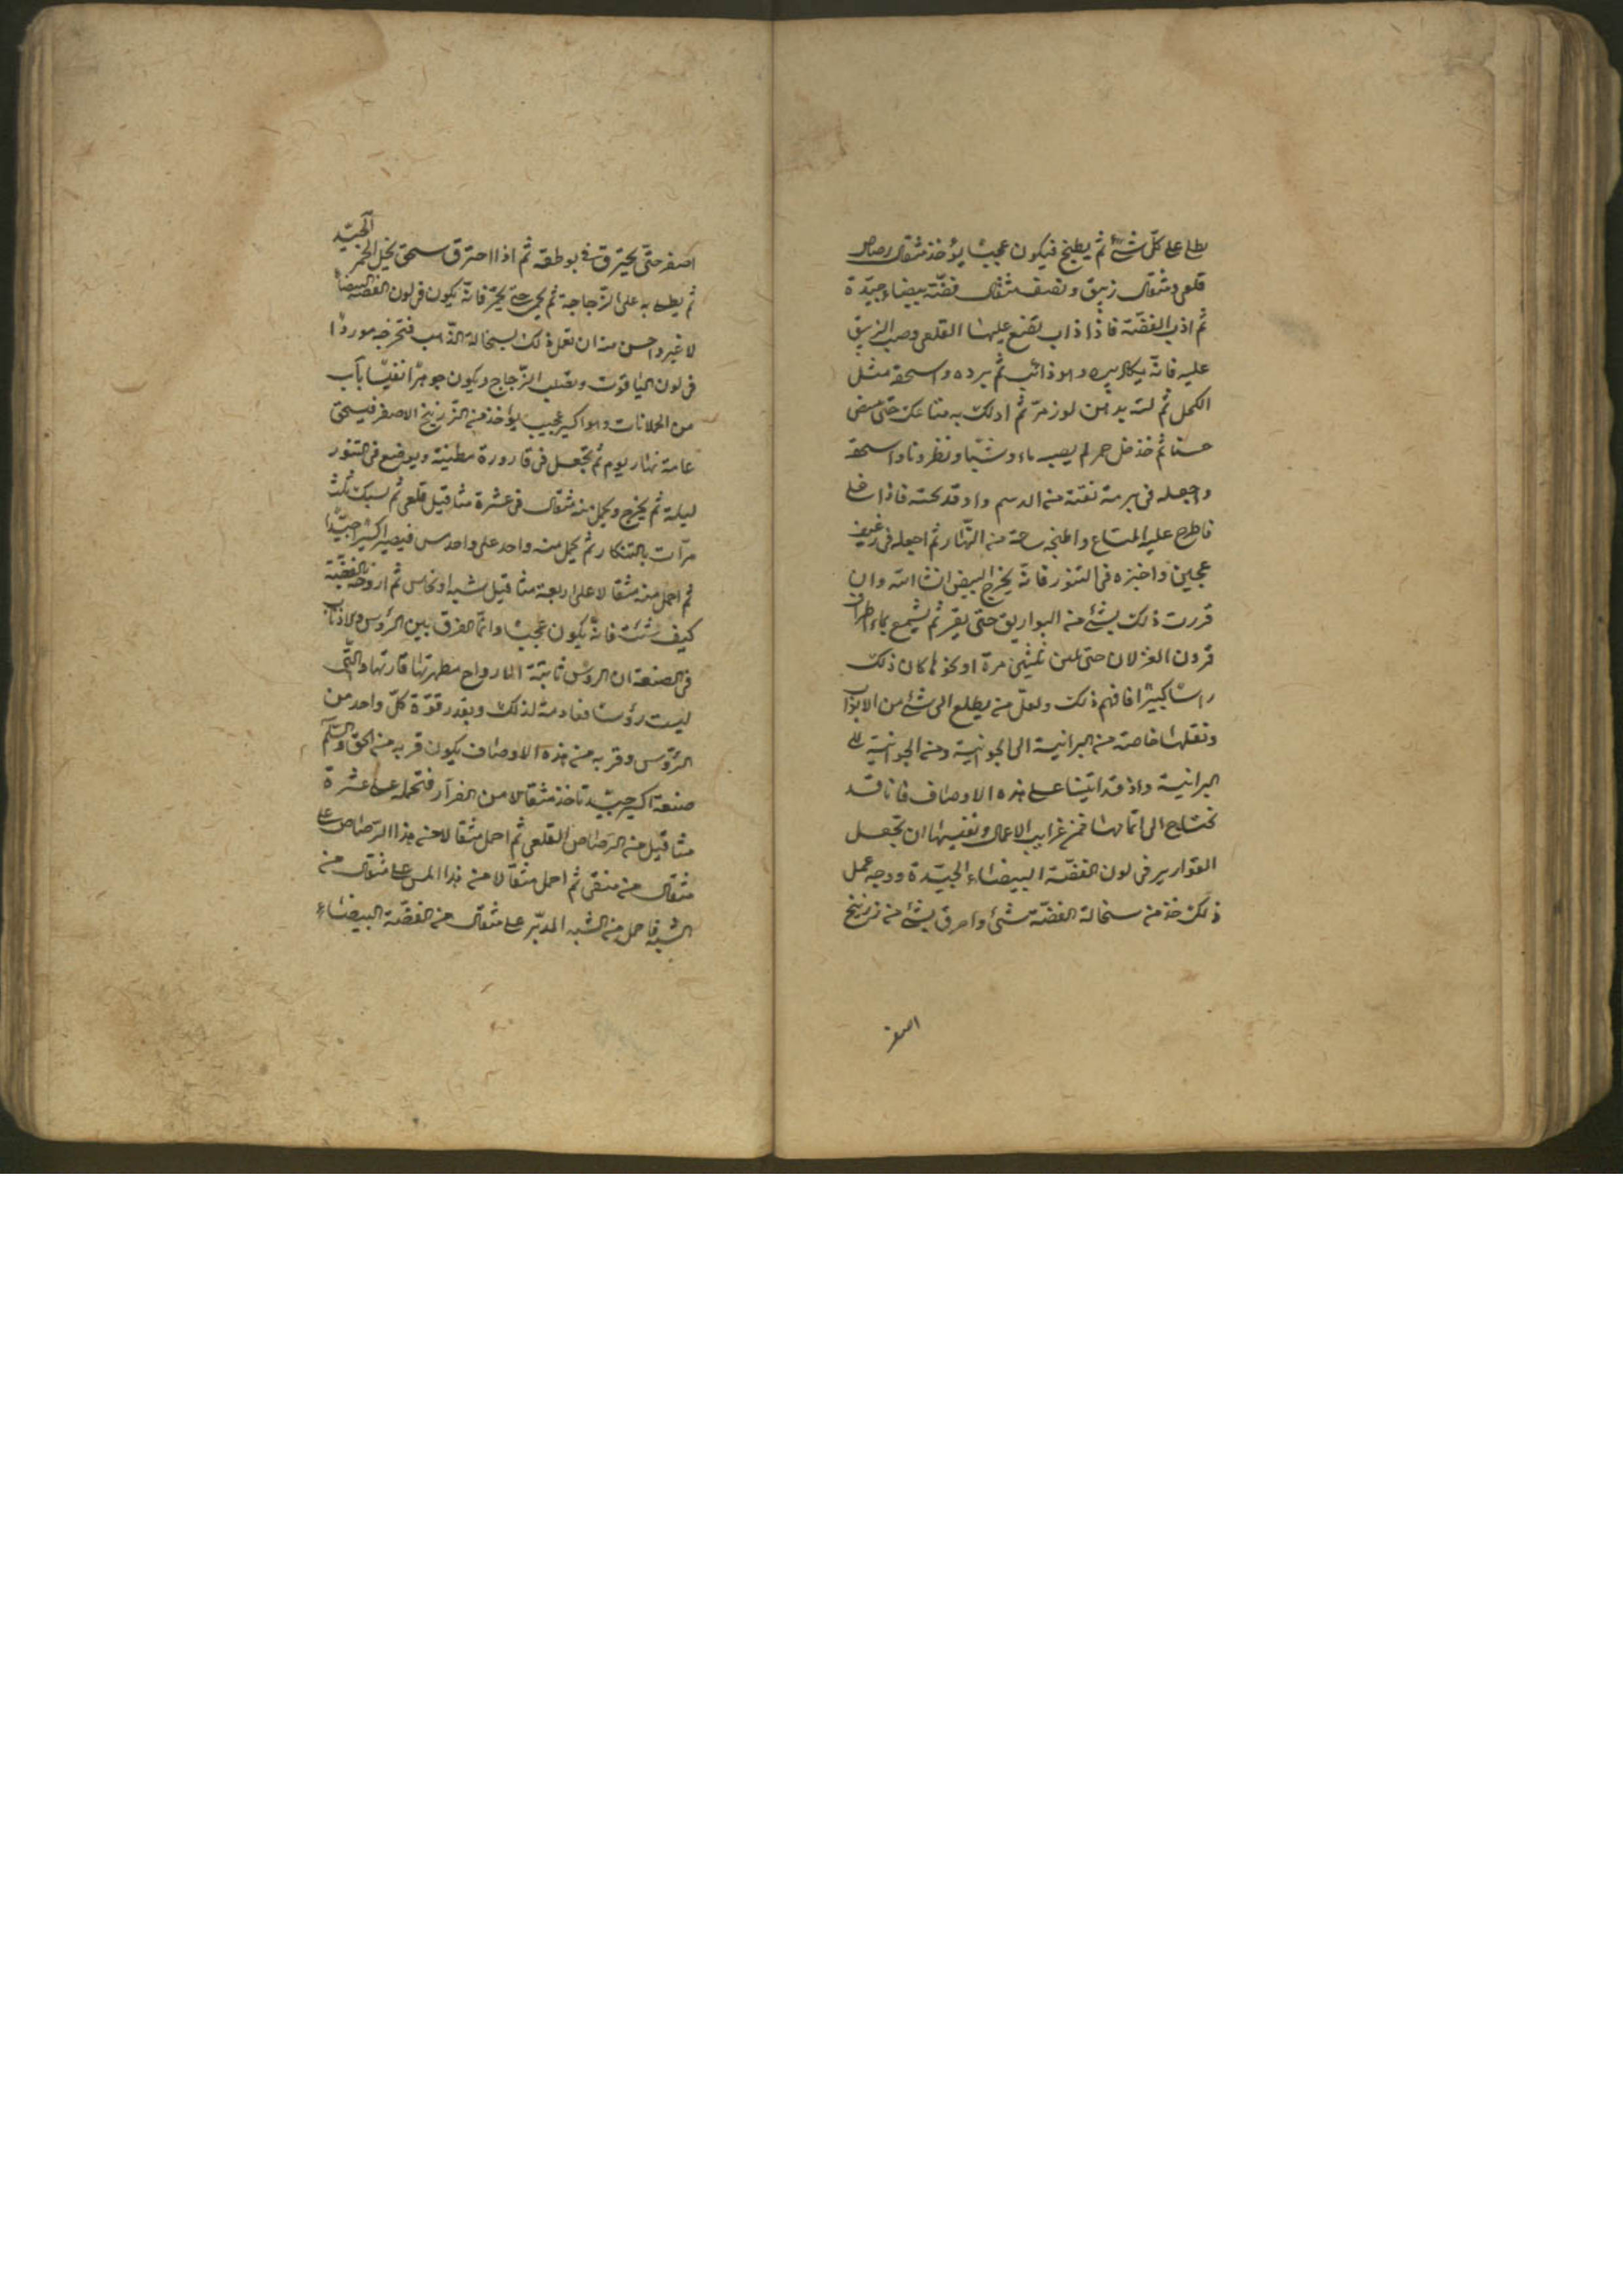 يطلى على كلّ شئ ثم يطبخ فيكون عجيبًا يؤخذ مثقال رصاص
قلعى ومثقال زيبق ونصف مثقال فضّة بيضاء جيّدة
ثم اذب الفضّة فاذا ذاب تضع عليها القلعى وصب الزيبق
عليه فانّه وهو ذائب ثم برده واسحقه مثل
الكحل ثم لته بدهن لوز مرّ ثم ادلك به متاعك حتى
حسنا ثم خذ خل خمر لم يصب ماء وشبّا ونطرونا واسحقه
واجعله فى برمة نقية من الدسم واوقد تحته فاذا غلى
فاطرح عليه المتاع واطبخه ساعة من النّهار ثم اجعله فى رغيف
عجين واخبزه فى التنور فانّه يخرج ابيض انشا الله وان
قررت ذلك بشئ من البواريق حتى يقر ثم يشمع بماء اطراف
قرون الغزلان حتى يلين مرة او نحوها كان ذلك
راسًا كبيرًا فافهم ذلك ولعلّ من يطلع الى شئ من الابواب
ونقلها خاصة من البرانية الى الجوانية ومن الجوانية الى
البرانية واذ قد اتينا على هذه الاوصاف فانا قد
نحتاج الى اتمامها فمن غرايب الاعمال ونفيسها ان تجعل
القوارير فى لون الفضّة البيضاء الجيّدة ووجه عمل
ذلك خذ من سحالة الفضّة شئ واحرق بشئ من زرنيخ
اصفر
اصفر حتّى يحترق فى بوطقه ثم اذا احترق سحق بخل الخمر الجيّد
ثم يطلى به على الزّجاجة ثم يحمى حتى يحمّر فانّه يكون فى لون الفضّة البيضاء
لا غير واحسن منه ان تعمل ذلك بسحالة الذّهب فتخرجه موردًا
فى لون الياقوت ويصلب الزّجاج ويكون جوهرًا نفيسًا باب
من الحملانات وهو اكسير عجيب يؤخذ من الزّرنيخ الاصفر فيسحق
عامة نهار يوم ثم تجعل فى قارورة مطينة ويوضع فى التنور
ليلة ثم يخرج ويحمل منه مثقال فى عشرة مثاقيل قلعى ثم يسبك ثلث
مرّات بالتنكار ثم يحمل منه واحد على واحد مس فيصير اكسيرًا جيّدًا
ثم احمل منه مثقالا على اربعة مثاقيل شبه او نحاس ثم ازوجه بالفضّة
كيف شئت فانّه يكون عجيبًا وانّما الفرق بين الرؤس والاذناب
فى الصنعة ان الرؤس ثابتة الارواح مطهرتها قارتها والتّى
ليست رؤسًا فعادمة لذلك وبقدر قوّة كلّ واحد من
الرّؤس وقربه من هذه الاوصاف يكون قربه من الحق والسّلم
صنعة اكسير جيّد تاخذ مثقالا من الفرار فتحمله على عشرة
مثاقيل من الرّصاص القلعى ثم احمل مثقالا من هذا الرّصاص على
مثقال مس منقى ثم احمل مثقالا من هذا المس على مثقال من
الشبه فاحمل من الشبه المدبّر على مثقال من الفضّة البيضاء